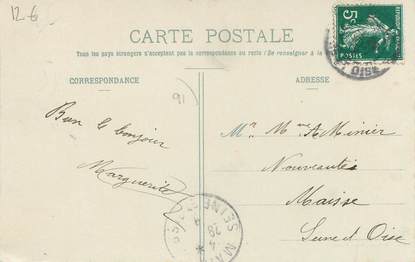 12-6
CARTE POSTALE
Tous les pays étrangers n'acceptent pas la correspondance au recto (Se renseigner à la
CORRESPONDANCE
ADRESSE
91
5c
POSTES
Bon
bonjour
Marguerite
Mr Mme A Minier
Nouveautés
Maisse
Seine et Oise
28
4